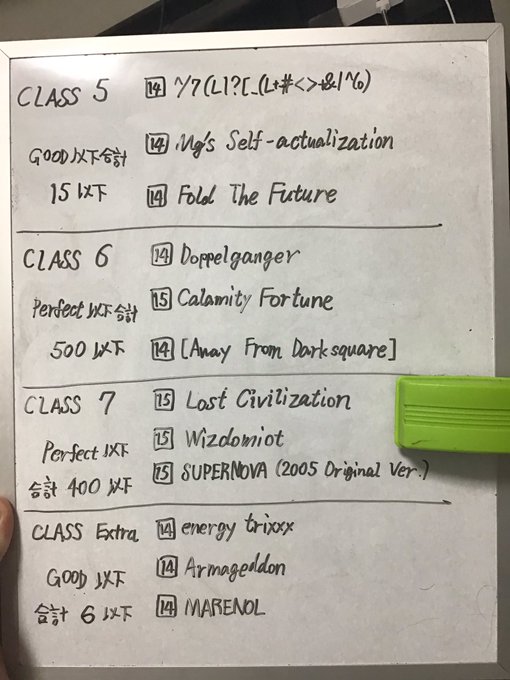 CLASS 5
14 Y7(L1?[_(L+#<>+&l^6)
GOOD以下合計
15以下
14 Mg's Self-actualization
14 Fold The Future
CLASS 6
Perfect以下合計
500以下
14 Doppelganger
15 Calamity Fortune
14 [Away From Darksquare]
CLASS 7
Perfect以下
合計 400以下
15 Lost Civilization
15 Wizdomiot
15 SUPERNOVA (2005 Original Ver.)
CLASS Extra
GOOD 以下
合計 6以下
14 energy trixxx
14 Armageddon
14 MARENOL